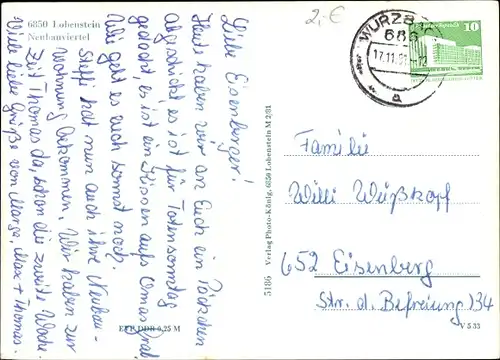 6850 Lobenstein
Neubauviertel
Liebe Eisenberger!
Heute haben wir an Euch ein Päckchen
abgeschickt, es ist für Totensonntag
gedacht, es ist ein Kissen aufs Omas Grab.
Wie geht es euch sonst noch.
Steffi hat nun auch ihre Neubau-
wohnung bekommen. Wir haben zur
Zeit Thomas da, schon die zweite Woche
Viele liebe Grüße von Marge, Max + Thomas.
EVP DDR 0,25 M
5186 Verlag Photo-König, 6850 Lobenstein M 2/81
2,-€
WURZB
686
17.11.8
a
10
Familie
Willi Weißkopf
652 Eisenberg
Str. d. Befreiung 34
V 5 33